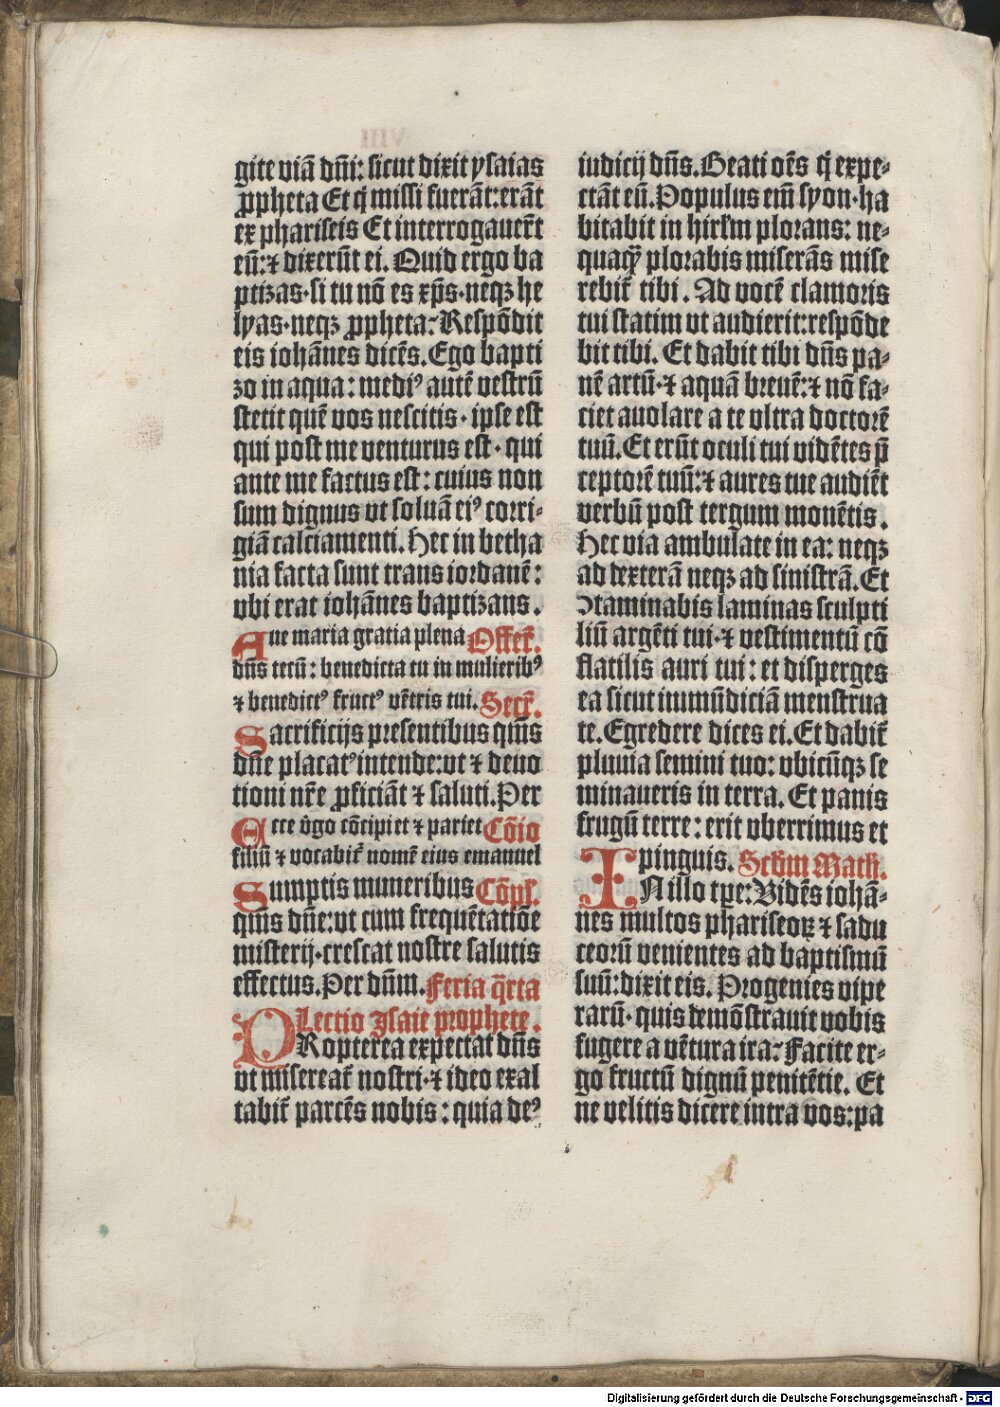 gite viā dn̄i: sicut dixit ysaias
ꝓpheta Et q̇ missi fuerāt: erāt
ex phariseis Et interrogauerūt
eū: ⁊ dixerūt ei. Quid ergo ba
ptizas · si tu nō es xp̄s · neqꝫ he
lyas · neqꝫ ꝓpheta: Respōdit
eis iohānes dicēs. Ego bapti
zo in aqua: mediꝰ autē vestrū
stetit quē vos nescitis · ipse est
qui post me venturus est · qui
ante me factus est: cuius non
sum dignus vt soluā eiꝰ corri-
giā calciamenti. Hec in betha
nia facta sunt trans iordanē:
vbi erat iohānes baptizans.
Aue maria gratia plena Offert̄.
dn̄s tecū: benedicta tu in mulieribꝰ
⁊ benedictꝰ fructꝰ vētris tui. Secr̄.
Sacrificijs presentibus qm̄s
dn̄e placatꝰ intende: vt ⁊ deuo
tioni nr̄e ꝓficiāt ⁊ saluti. Per
Ecce v̄go cōcipiet ⁊ pariet Cōio
filiū ⁊ vocabit̄ nomē eius emanuel
Sumptis muneribus Cōpl̄.
qm̄s dn̄e: vt cum frequētatiōe
misterij · crescat nostre salutis
effectus. Per dn̄m. Feria q̄rta
Lectio Isaie prophete.
PRopterea expectat dn̄s
vt misereat̄ nostri · ⁊ ideo exal
tabit̄ parcēs nobis: quia deꝰ
iudicij dn̄s. Beati oēs q̇ expe-
ctāt eū. Populus em̄ syon · ha
bitabit in hirl̄m plorans: ne-
quaq̄ plorabis miserās mise
rebit̄ tibi. Ad vocē clamoris
tui statim vt audierit: respōde
bit tibi. Et dabit tibi dn̄s pa-
nē artū · ⁊ aquā breuē: ⁊ nō fa-
ciet auolare a te vltra doctorē
tuū. Et erūt oculi tui vidētes p̄
ceptorē tuū: ⁊ aures tue audiēt
verbū post tergum monētis.
Hec via ambulate in ea: neqꝫ
ad dexterā neqꝫ ad sinistrā. Et
ↄtaminabis laminas sculpti
liū argēti tui · ⁊ vestimentū cō
flatilis auri tui: et disperges
ea sicut inmūdiciā menstrua
te. Egredere dices ei. Et dabit̄
pluuia semini tuo: vbicūqꝫ se
minaueris in terra. Et panis
frugū terre: erit vberrimus et
pinguis. Scd̄m Math̄.
IN illo tpe: Vidēs iohā-
nes multos phariseoꝝ ⁊ sadu
ceorū venientes ad baptismū
suū: dixit eis. Progenies vipe
rarū · quis demōstrauit vobis
fugere a vētura ira: Facite er-
go fructū dignū penitētie. Et
ne velitis dicere intra vos: pa
Digitalisierung gefördert durch die Deutsche Forschungsgemeinschaft - DFG